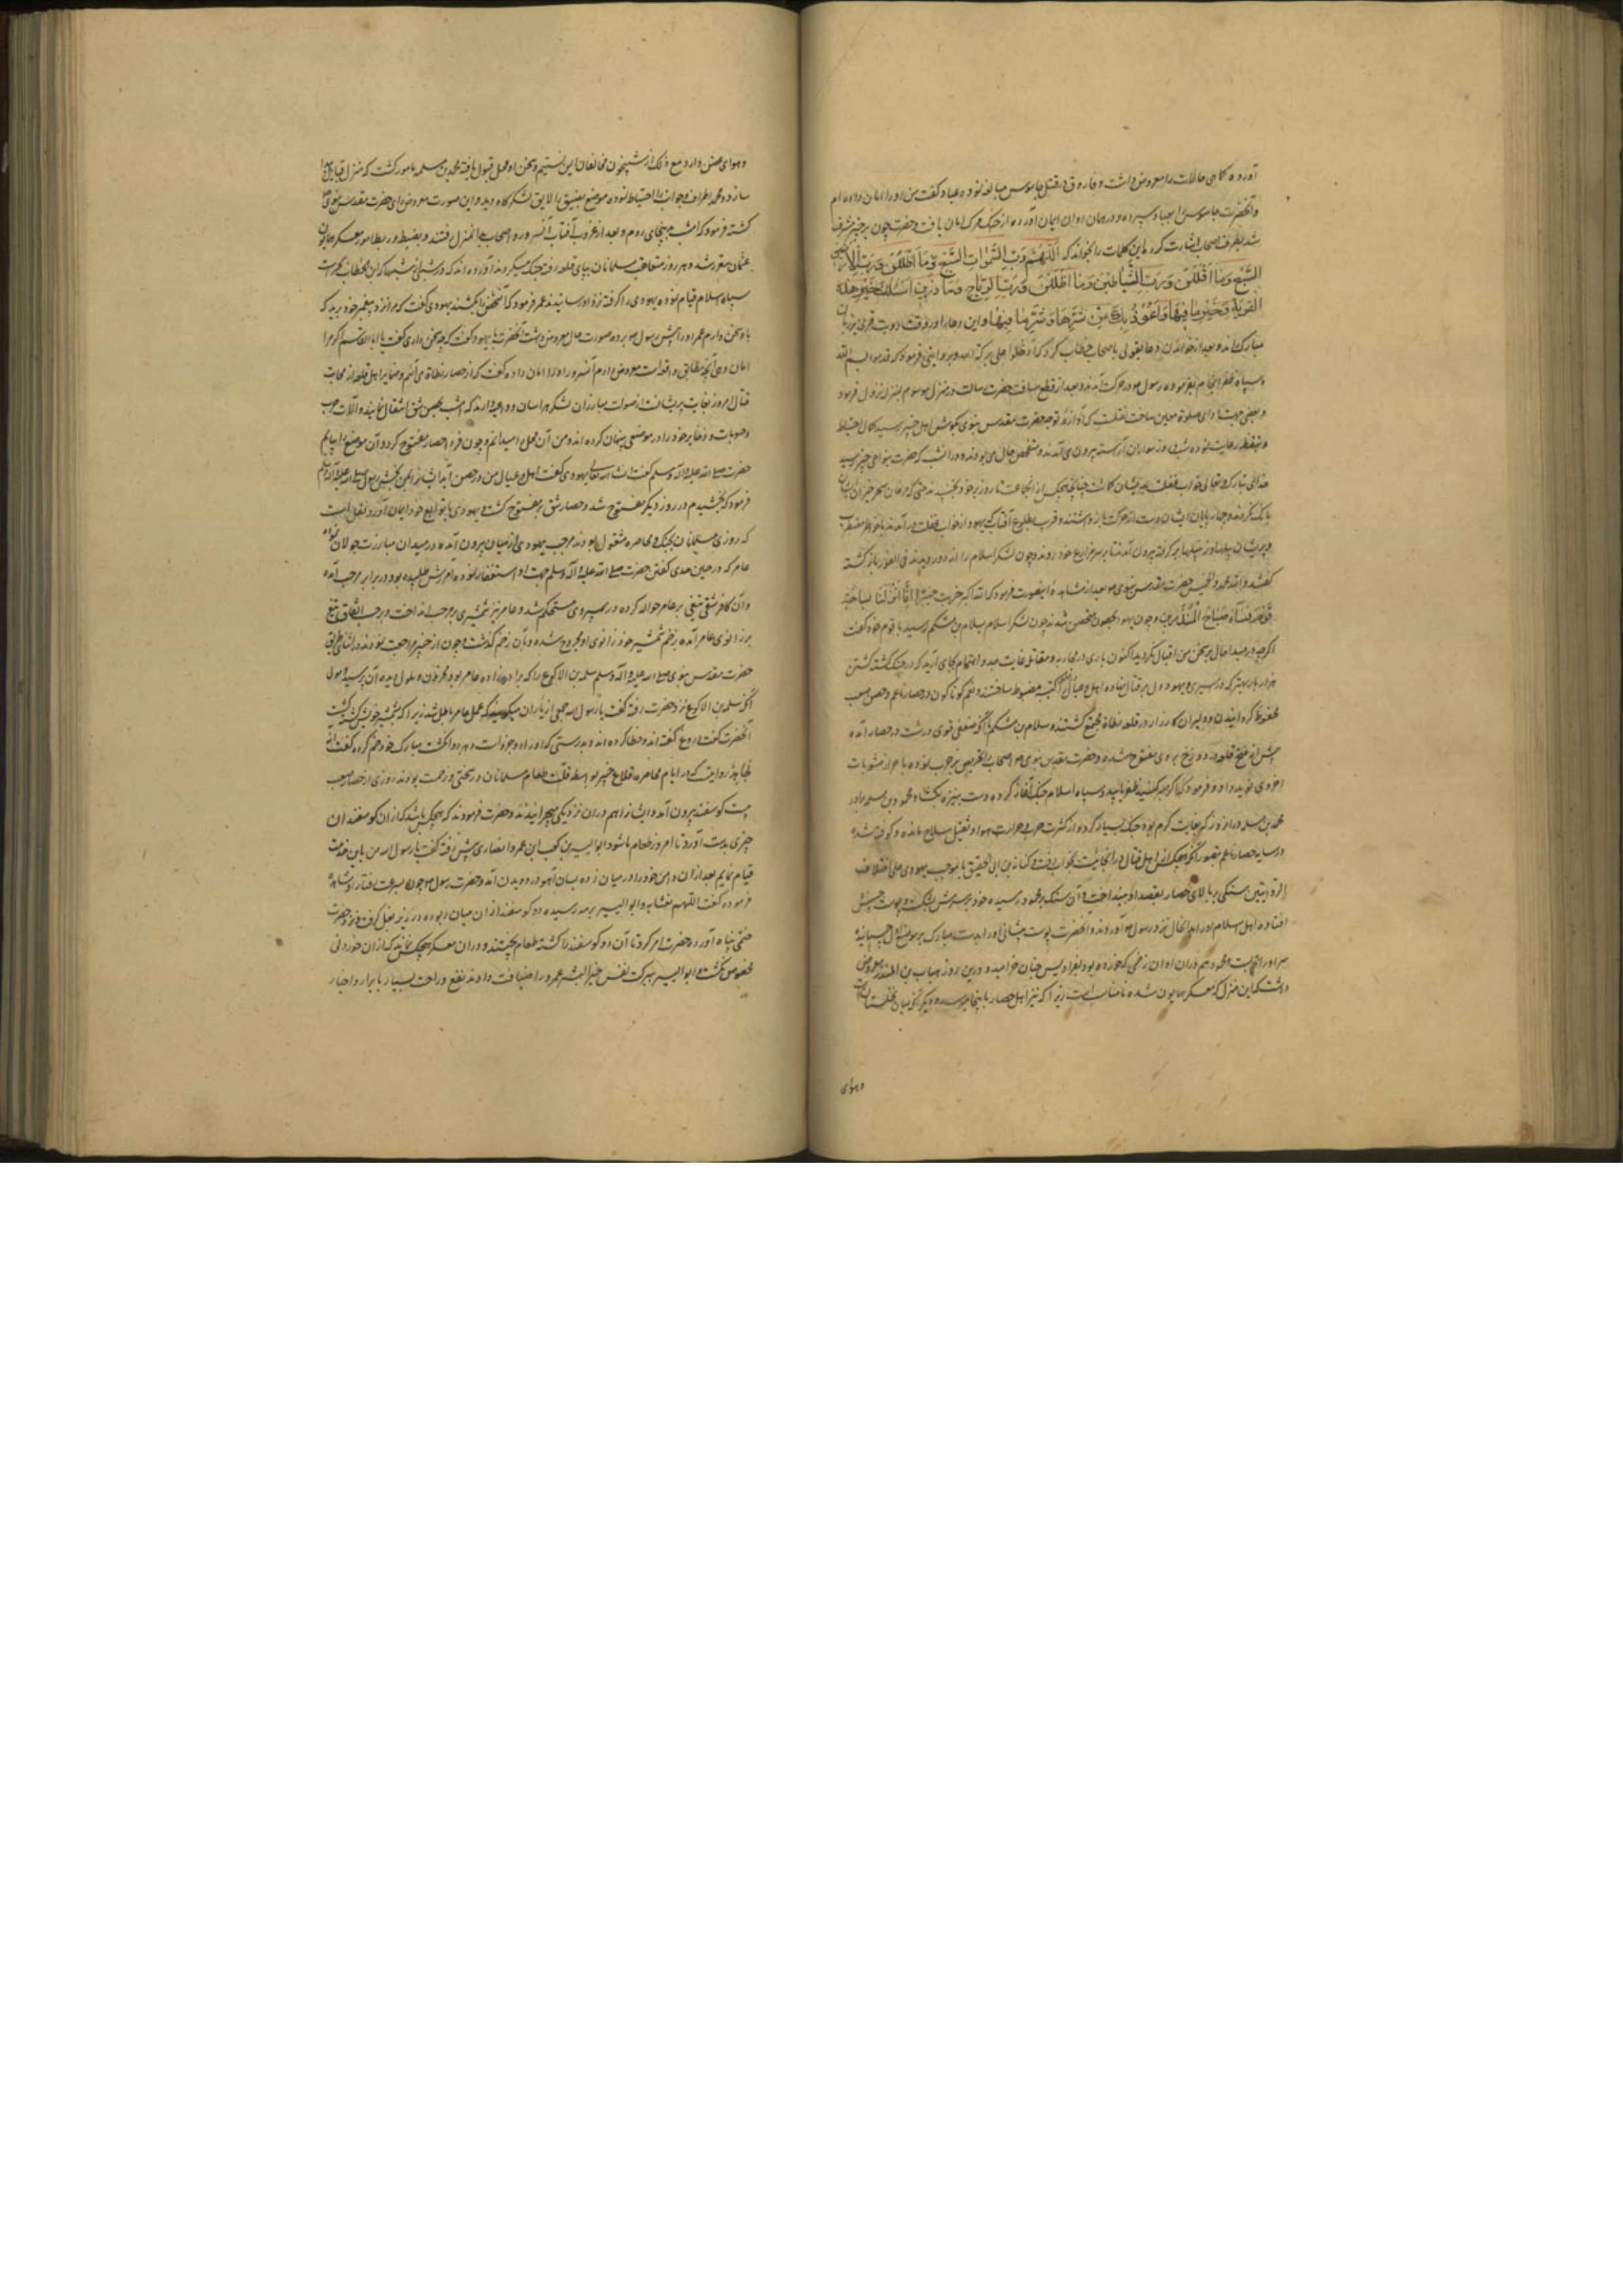 آورده کماهی حالات را معروض داشت و فاروق در قتل جاسوس مبالغه نموده عباد گفت من او را امان داده‌ام
و آنحضرت جاسوس را بعباد سپرده و در همان اوان ایمان آورده از جنک مرک امان یافت و حضرت چون بر خیبر مشرف
شد بطرف اصحاب اشارت کرد این کلمات را بخواند که اَللّٰهُمَّ رَبَّ السَّمٰوَاتِ السَّبْعِ وَمَا اَظْلَلْنَ وَرَبَّ الْاَرَضِينَ
السَّبْعِ وَمَا اَقْلَلْنَ وَرَبَّ الشَّيَاطِينَ وَمَا اَضْلَلْنَ وَرَبَّ الرِّيَاحِ وَمَا ذَرَيْنَ اَسْئَلُكَ خَيْرَ هٰذِهِ
القَرْيَةِ وَخَيْرَ مَا فِيهَا وَاَعُوذُ بِكَ مِنْ شَرِّهَا وَشَرِّ مَا فِيهَا و این دعا را در وقت رویت قری بر زبان
مبارک راند و بعد از خواندن دعا بقولی با صحاب خطاب کرد که ادخلوا علی برکة الله و بروایتی فرمود که قدموا بسم الله
و سپاه ظفر انجام بفرموده رسول در حرکت آمدند و بعد از قطع مسافت حضرت رسالت در منزل موسوم بمنزله نزول فرمود
و بعضی جهت ادای صلوة معین ساخت نقلست که آوازه توجه حضرت مقدس نبوی بکوش اهل خیبر رسید کمال احتیاط
و تیقظ رعایت نموده شب و روز سواران آراسته بیرون می‌آمدند و متفحص حال می‌بودند و در آن شب که حضرت بنواحی خیبر رسید
خدای تبارک و تعالی خواب غفلت بر ایشان کماشت چنانچه هیچکس از آنجماعت تا روز بر خود نجنبیدند حتی که مرغان سحر خیز ایشان
بانک نکردند و چهارپایان ایشان دست از حرکت باز داشتند و قریب بطلوع آفتاب یهود از خواب غفلت در آمدند با خواطر مضطرب
و پریشان بیلها و زنبیلها بر گرفته بیرون آمدند تا بر سر مزارع خود روند و چون لشکر اسلام را از دور دیدند فی الفور بازگشته
گفتند والله محمد والخمیس حضرت مقدس نبوی بعد از مشاهده اینصورت فرمود که الله اکبر خربت خیبر اِنَّا اِذَا نَزَلْنَا بِسَاحَةِ
قَوْمٍ فَسَاءَ صَبَاحُ الْمُنْذَرِينَ و چون یهود بحصون متحصن شدند چون لشکر اسلام بسلام بن مشکم رسید با قوم خود گفت
اگرچه در مبدا حال بر سخن من اقبال نکردید اکنون باری در محاربه و مقاتله غایت جد و اهتمام بجای آرید که در جنک کشته کشتن
هزار بار بهتر که در اسیری یهود دل بر قتال نهاده اهل و عیال را در کتیبه مضبوط ساختند و نعم کوناکون در حصار ناعم و حصن صعب
محفوظ کردانیدند و دلیران کارزار در قلعه نطاة مجتمع کشتند و سلام بن مشکم با آنکه ضعفی قوی داشت در حصار آمده
پیش از فتح قلعه در دوزخ بر وی مفتوح شد و حضرت مقدس نبوی اصحاب را بتحریض حرب نموده با حراز مثوبات
اخروی نوید داد و فرمود که اگر صبر کنید ظفر یابید و سپاه اسلام جنک آغاز کرده دست بتیزه بکشاد و محمود بن مسلمه برادر
محمد بن مسلمه در آن روز که بغایت گرم بود جنک بسیار کرده و از کثرت حرب و حرارت هوا و ثقیل سلاح مانده و کوفته شده
در سایه حصار ناعم بتصور آنکه هیچکس از اهل قتال در آنجا نیست بخواب رفت و کنانه بن ابی الحقیق یا مرحب یهودی علی اختلاف
الروایتین سنگی بر بالای حصار بقصد او بینداخت و آن سنک بر محمود رسیده خود بر سرش بشکست و پوست جبینش
افتاده اهل اسلام او را بدانحال نزد رسول آوردند و آنحضرت پوست پیشانی او را بدست مبارک بر موضع اول چسبانید
سر او را به بست و محمود هم در آن اوان زخمی که خورده بود بفرادیس جنان خرامید و درین روز حباب بن المنذر معروض
داشت که این منزل که معسکر همایون شده نامناسب است زیرا که تیر اهل حصار باینجا میرسد و دیگر آنکه میان نخلستان است
و هوای
و هوای عفن دارد و مع ذلک از شبیخون مخالفان ایمن نیستیم و سخن او محل قبول یافته محمد بن مسلمه مامور کشت که منزل قابل پیدا
سازد و محمد اطراف و جوانب را احتیاط نموده موضع رجیع را لایق لشکرگاه دید و این صورت معروض رای حضرت مقدس نبوی
کشته فرمود که امشب بدانجای رویم و بعد از غروب آفتاب آنسرور و اصحاب بدانمنزل رفتند و بضبط و ربط امور معسکر همایون
عثمان مقرر شد و هر روز متعاقب مسلمانان بپای قلعه رفته جنک میکردند آورده‌اند که در شبی از شبها که ابن خطاب بحراست
سپاه اسلام قیام نموده یهودی را گرفته نزد او رسانیدند عمر فرمود که آنشخص را بکشند یهودی گفت که مرا نزد پیغمبر خود برید که
با وی سخن دارم عمر او را پیش رسول برده صورت حال معروض داشت آنحضرت با یهود گفت که چه سخن داری گفت یا ابا القاسم اگر مرا
امان دهی آنچه مطابق واقعست معروض دارم آنسرور او را امان داده گفت که از حصار نطاة می‌آیم و بنابر اهل قلعه از محاربت
قتال امروز بغایت پریشانند از صولت مبارزان لشکر هراسان و داعیه دارند که امشب بحصن شق انتقال نمایند و آلات حرب
و حبوبات و ذخایر خود را در موضعی پنهان کرده‌اند و من آن محل را میدانم و چون فردا حصار مفتوح کردد آن موضع را بنمایم
حضرت صلی الله علیه و آله وسلم گفت ان شاء الله تعالی یهودی گفت اهل و عیال من در حصن آمدند ایشانرا بمن بخش رسول صلی الله علیه و آله وسلم
فرمود که بخشیدم در روز دیگر نطاة مفتوح شد و حصار شق نیز مفتوح کشت و یهودی با توابع خود ایمان آورد نقل است
که روزی مسلمانان بجنک و محاصره مشغول بودند مرحب یهودی از میان بیرون آمده در میدان مبارزت جولان نموده
عامر که در حین حدی گفتن حضرت صلی الله علیه و آله وسلم جهت او استغفار نموده آمرزش طلبیده بود در برابر مرحب آمده
و آن کافر شقی تیغی بر عامر حواله کرده در سپر وی مستحکم شد و عامر نیز شمشیری بر مرحب انداخت و بر حسب اتفاق تیغ
بر زانوی عامر آمده بزخم شمشیر خود زانوی او مجروح شده و بآن زخم گذشت و چون از خیبر مراجعت نمودند در اثنای طریق
حضرت مقدس نبوی صلی الله علیه و آله وسلم سلمه بن الاکوع را که برادرزاده عامر بود محزون و ملول دیده آن پرسید و بقول
آنکه سلمه بن الاکوع نزد حضرت رفته گفت یا رسول الله جمعی از یاران میگویند که عمل عامر باطل شد زیرا که بشمشیر خویش کشته گشت
آنحضرت گفت دروغ گفته‌اند و خطا کرده‌اند و بدرستی که او را دو اجر است و هر دو انگشت مبارک خود ضم کرده گفت انه
لجاهد روایت که در ایام محاصره قلاع خیبر بواسطه قلت طعام مسلمانان در سختی و زحمت بودند روزی از حصار صعب
بیست کوسفند بیرون آمد و ایشانرا هم در آن نزدیکی میچرانیدند و حضرت فرمودند که هیچکس باشد که از آن کوسفندان
چیزی بدست آورد تا امروز طعام ما شود ابوالیسر بن کعب ابن عمرو انصاری پیش رفته گفت یا رسول الله من باین خدمت
قیام نمایم بعد از آن دامن خود را در میان زده بسان آهو در دویدن آمد و حضرت رسول چون سرعت رفتار او مشاهده
فرموده گفت اللهم متعنا به و ابوالیسر برمه رسیده دو کوسفند از آن میان ربوده در زیر بغل گرفته و نزد حضرت
ختمی پناه آورده حضرت امر کرد تا آن دو کوسفند را کشته طعام پختند و در آن معسکر هیچکس نماند که از آن خوردنی
مخصوص نگشت و ابوالیسر ببرکت نفس خیر البشر عمر دراز یافت و او مدتی نفع و راحت بسیار بابرار و اخیار